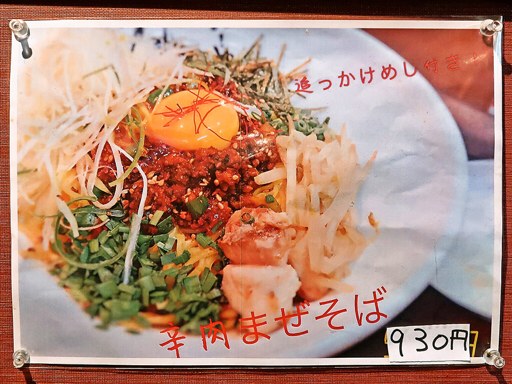 追っかけめし付き
辛肉まぜそば
930円